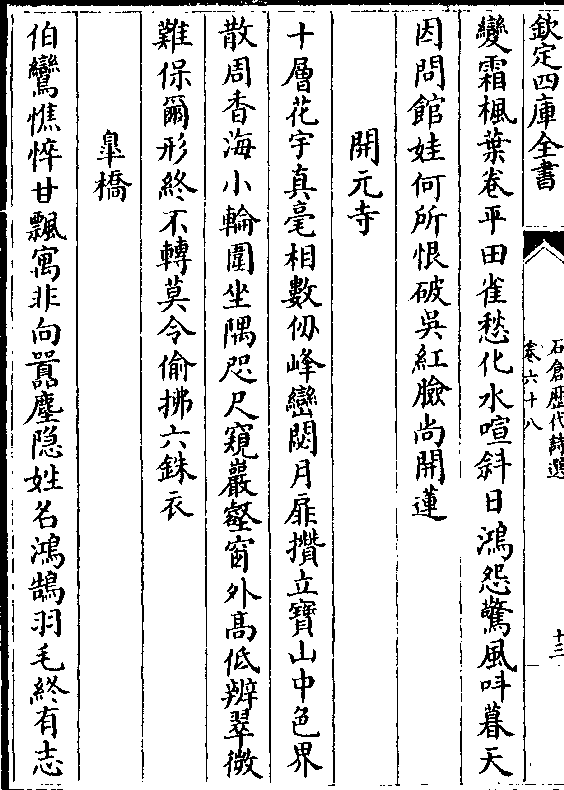 欽定四庫全書
石倉歷代詩選
卷六十八
十三
變霜楓葉卷平田雀愁化水喧斜日鴻怨驚風呌暮天
因問館娃何所恨破吳紅臉尚開蓮
開元寺
十層花宇真毫相數仭峰巒閟月扉攢立寶山中色界
散周香海小輪圍坐隅咫尺窺巖壑窗外髙低辨翠微
難保爾形終不轉莫令偷拂六銖衣
臯橋
伯鸞憔悴甘飄寓非向囂塵隠姓名鴻鵠羽毛終有志